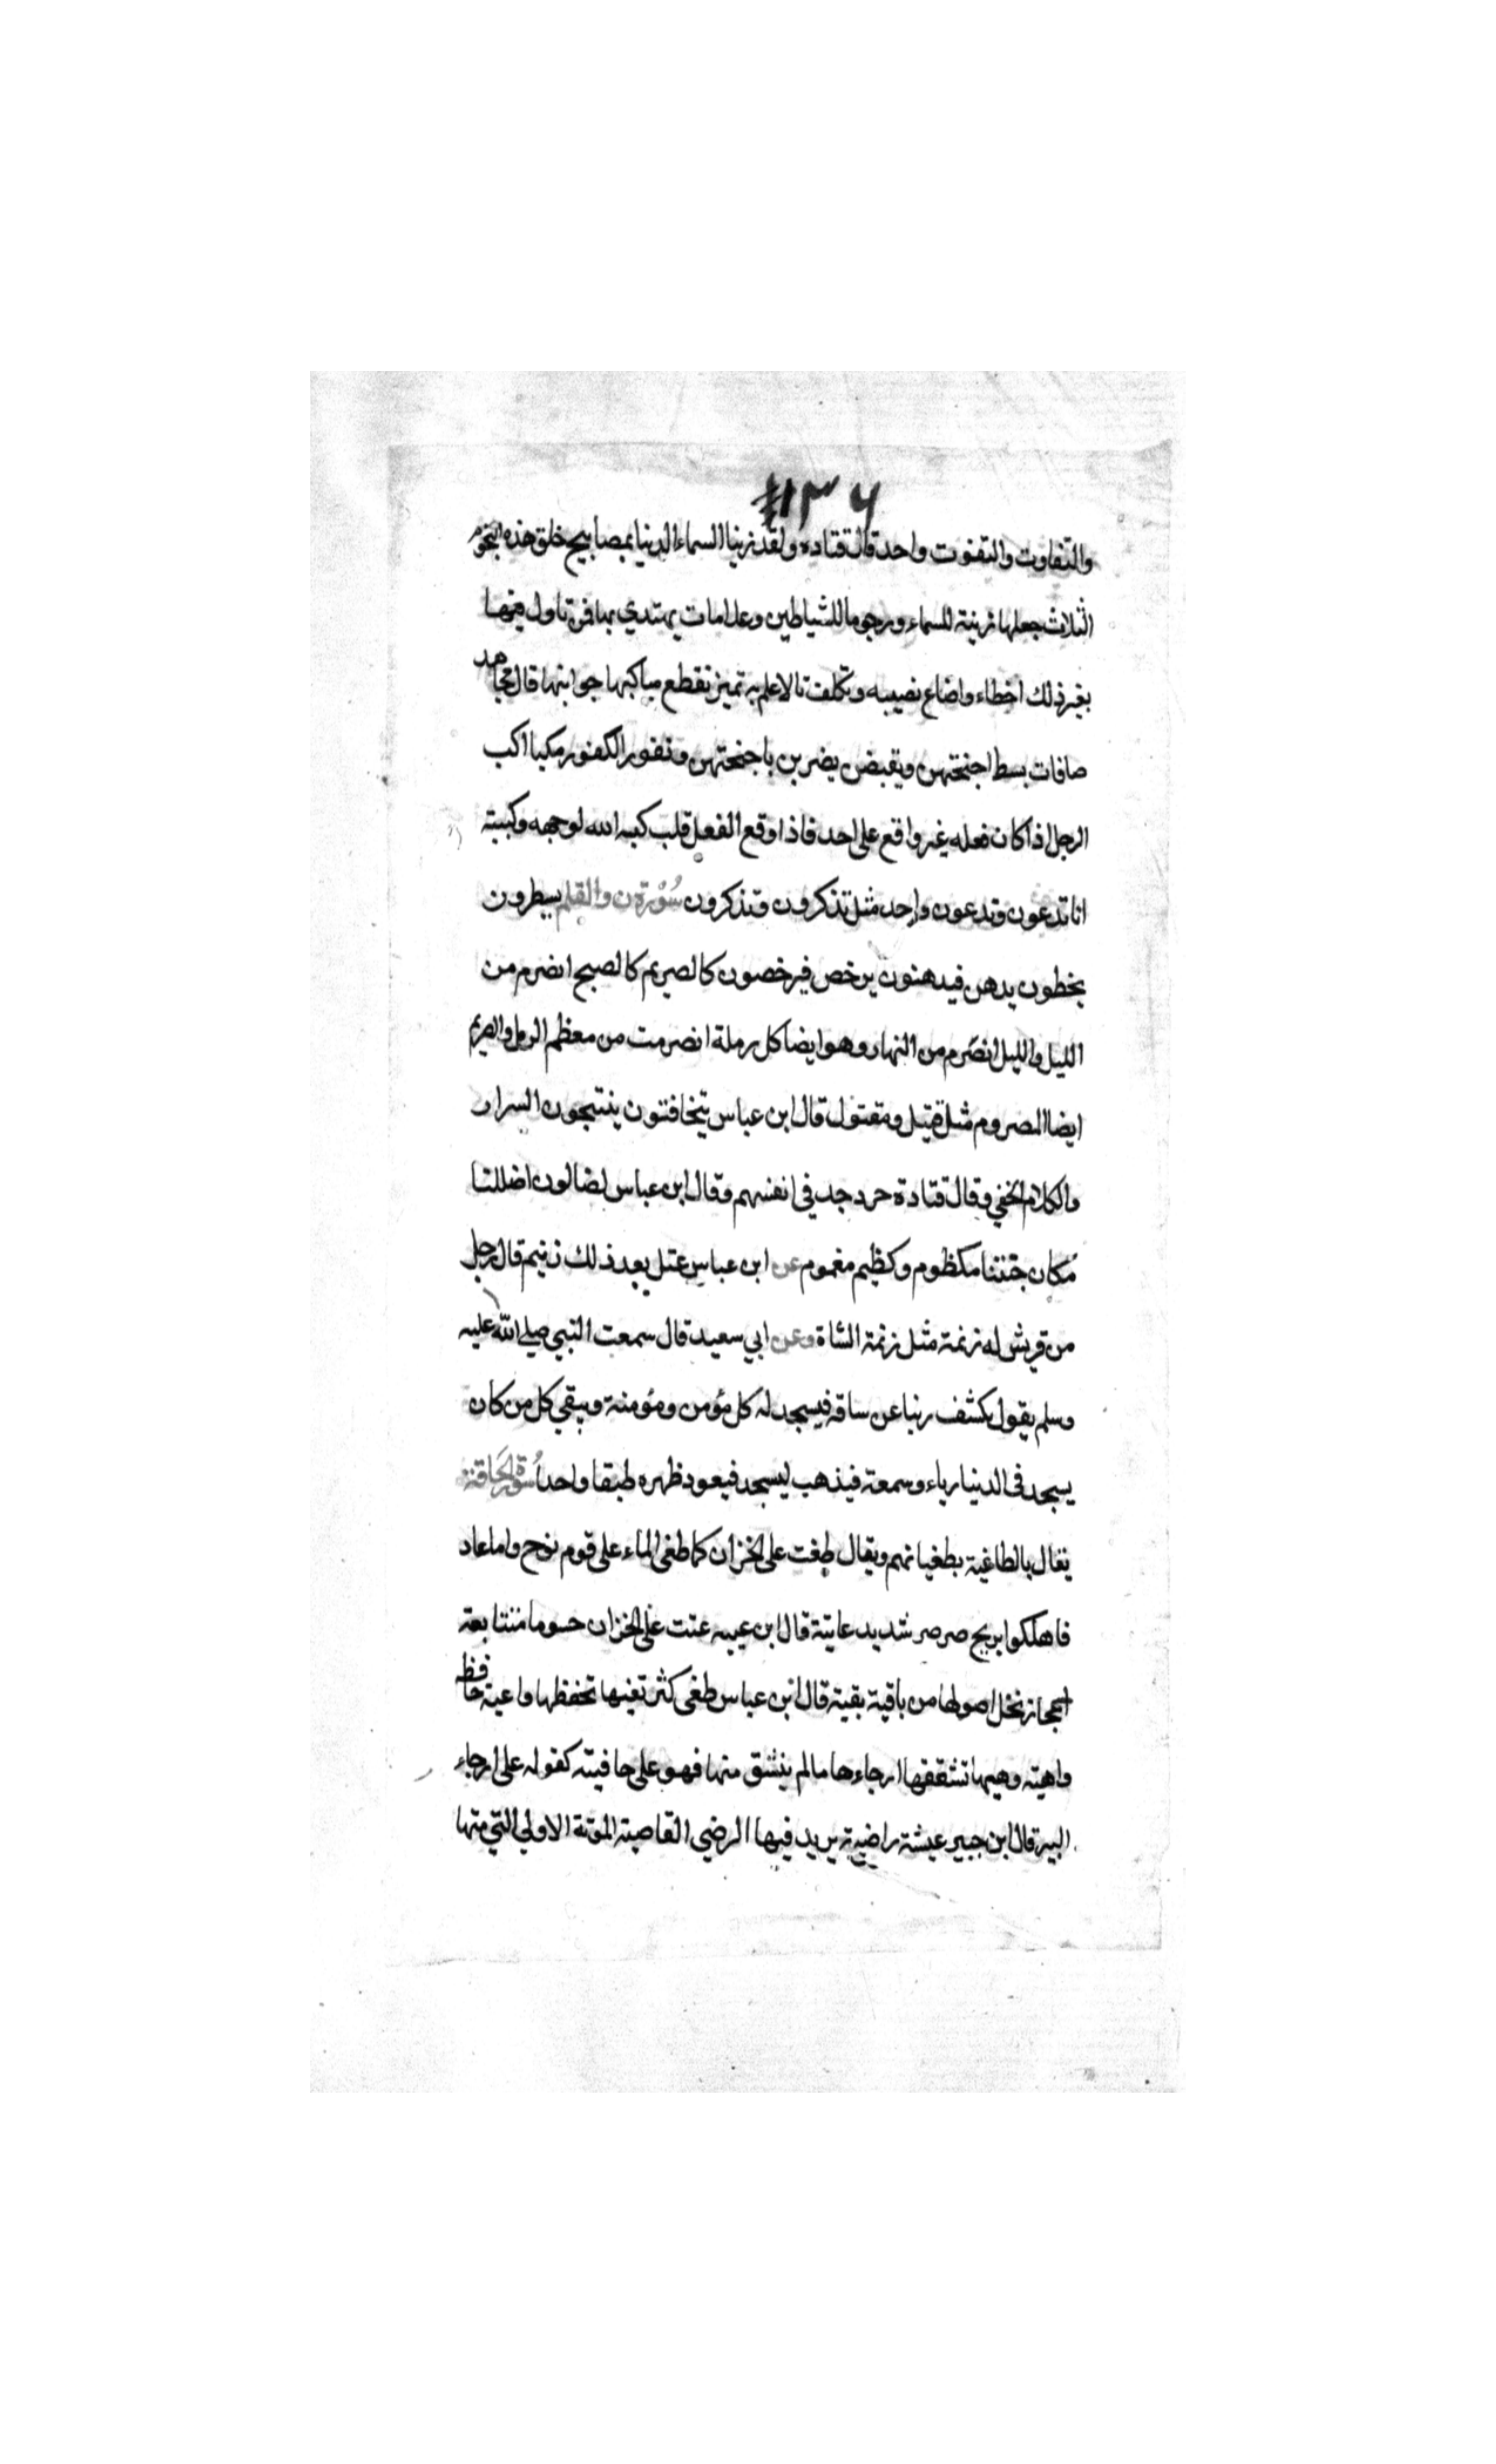 ١٣٦
والتفاوت والتفوت واحد قال قتادة ولقد زينا السماء الدنيا بمصابيح خلق هذه النجوم
الثلاث جعلها زينة للسماء ورجوما للشياطين وعلامات يهتدي بها فمن تاول فيها
بغير ذلك اخطاء واضاع نصيبه وتكلف ما لا علم به تميز تقطع مناكبها جوانبها قال مجاهد
صافات بسط اجنحتهن ويقبض يضربن باجنحتهن ونفور الكفور مكبا اكب
الرجل اذا كان فعله غير واقع على احد فاذا وقع الفعل قلب كبه الله لوجهه وكببته
انا تدعون وتدعون واحد مثل تذكرون وتذكرون سُوْرة ن والقلم يسطرون
يخطون يدهن فيدهنون يرخص فيرخصون كالصريم كالصبح انصرم من
الليل والليل انصرم من النهار وهو ايضا كل رملة انصرمت من معظم الرمل والصريم
ايضا المصروم مثل قتيل ومقتول قال ابن عباس يتخافتون ينتجون السرار
والكلام الخفي وقال قتادة حرد جد في انفسهم وقال ابن عباس لضالون اضللنا
مكان جنتنا مكظوم وكظيم مغموم عن ابن عباس عتل بعد ذلك زنيم قال رجل
من قريش له زنمة مثل زنمة الشاة وعن ابي سعيد قال سمعت النبي صلى الله عليه
وسلم يقول يكشف ربنا عن ساقه فيسجد له كل مؤمن ومؤمنة ويبقي كل من كان
يسجد في الدنيا رياء وسمعة فيذهب ليسجد فيعود ظهره طبقا واحدا سُورة الحَاقة
يقال بالطاغية بطغيانهم ويقال طغت على الخزان كما طغى الماء على قوم نوح واما عاد
فاهلكوا بريح صرصر شديد عاتية قال ابن عيينه عتت على الخزان حسوما متتابعة
اعجاز نخل اصولها من باقية بقية قال ابن عباس طغى كثر تعيها تحفظها واعية حافظه
واهية وهيها تشققها ارجاءها ما لم ينشق منها فهو على حافيته كقوله على ارجاء
البير قال ابن جبير عيشة راضية يريد فيها الرضي القاصية الموتة الاولي التي متها